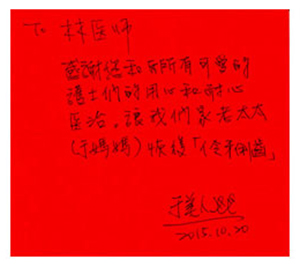 To 林医师
感謝您和所有可愛的
護士們的用心和耐心
医治，讓我們家老太太
(于媽媽) 恢復「
2015.10.20